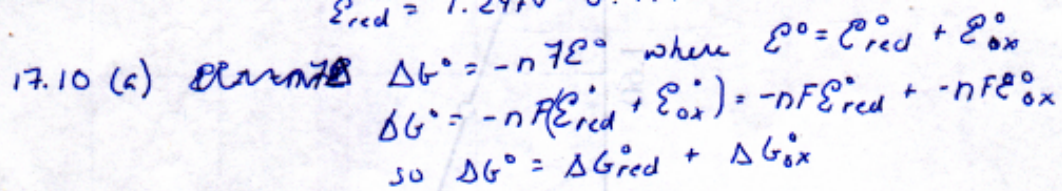 ℰred = 1.24
17.10 (a) ΔG° = -nℱℰ° where ℰ° = ℰ°red + ℰ°ox
ΔG° = -nF(ℰ°red + ℰ°ox) = -nFℰ°red + -nFℰ°ox
so ΔG° = ΔG°red + ΔG°ox